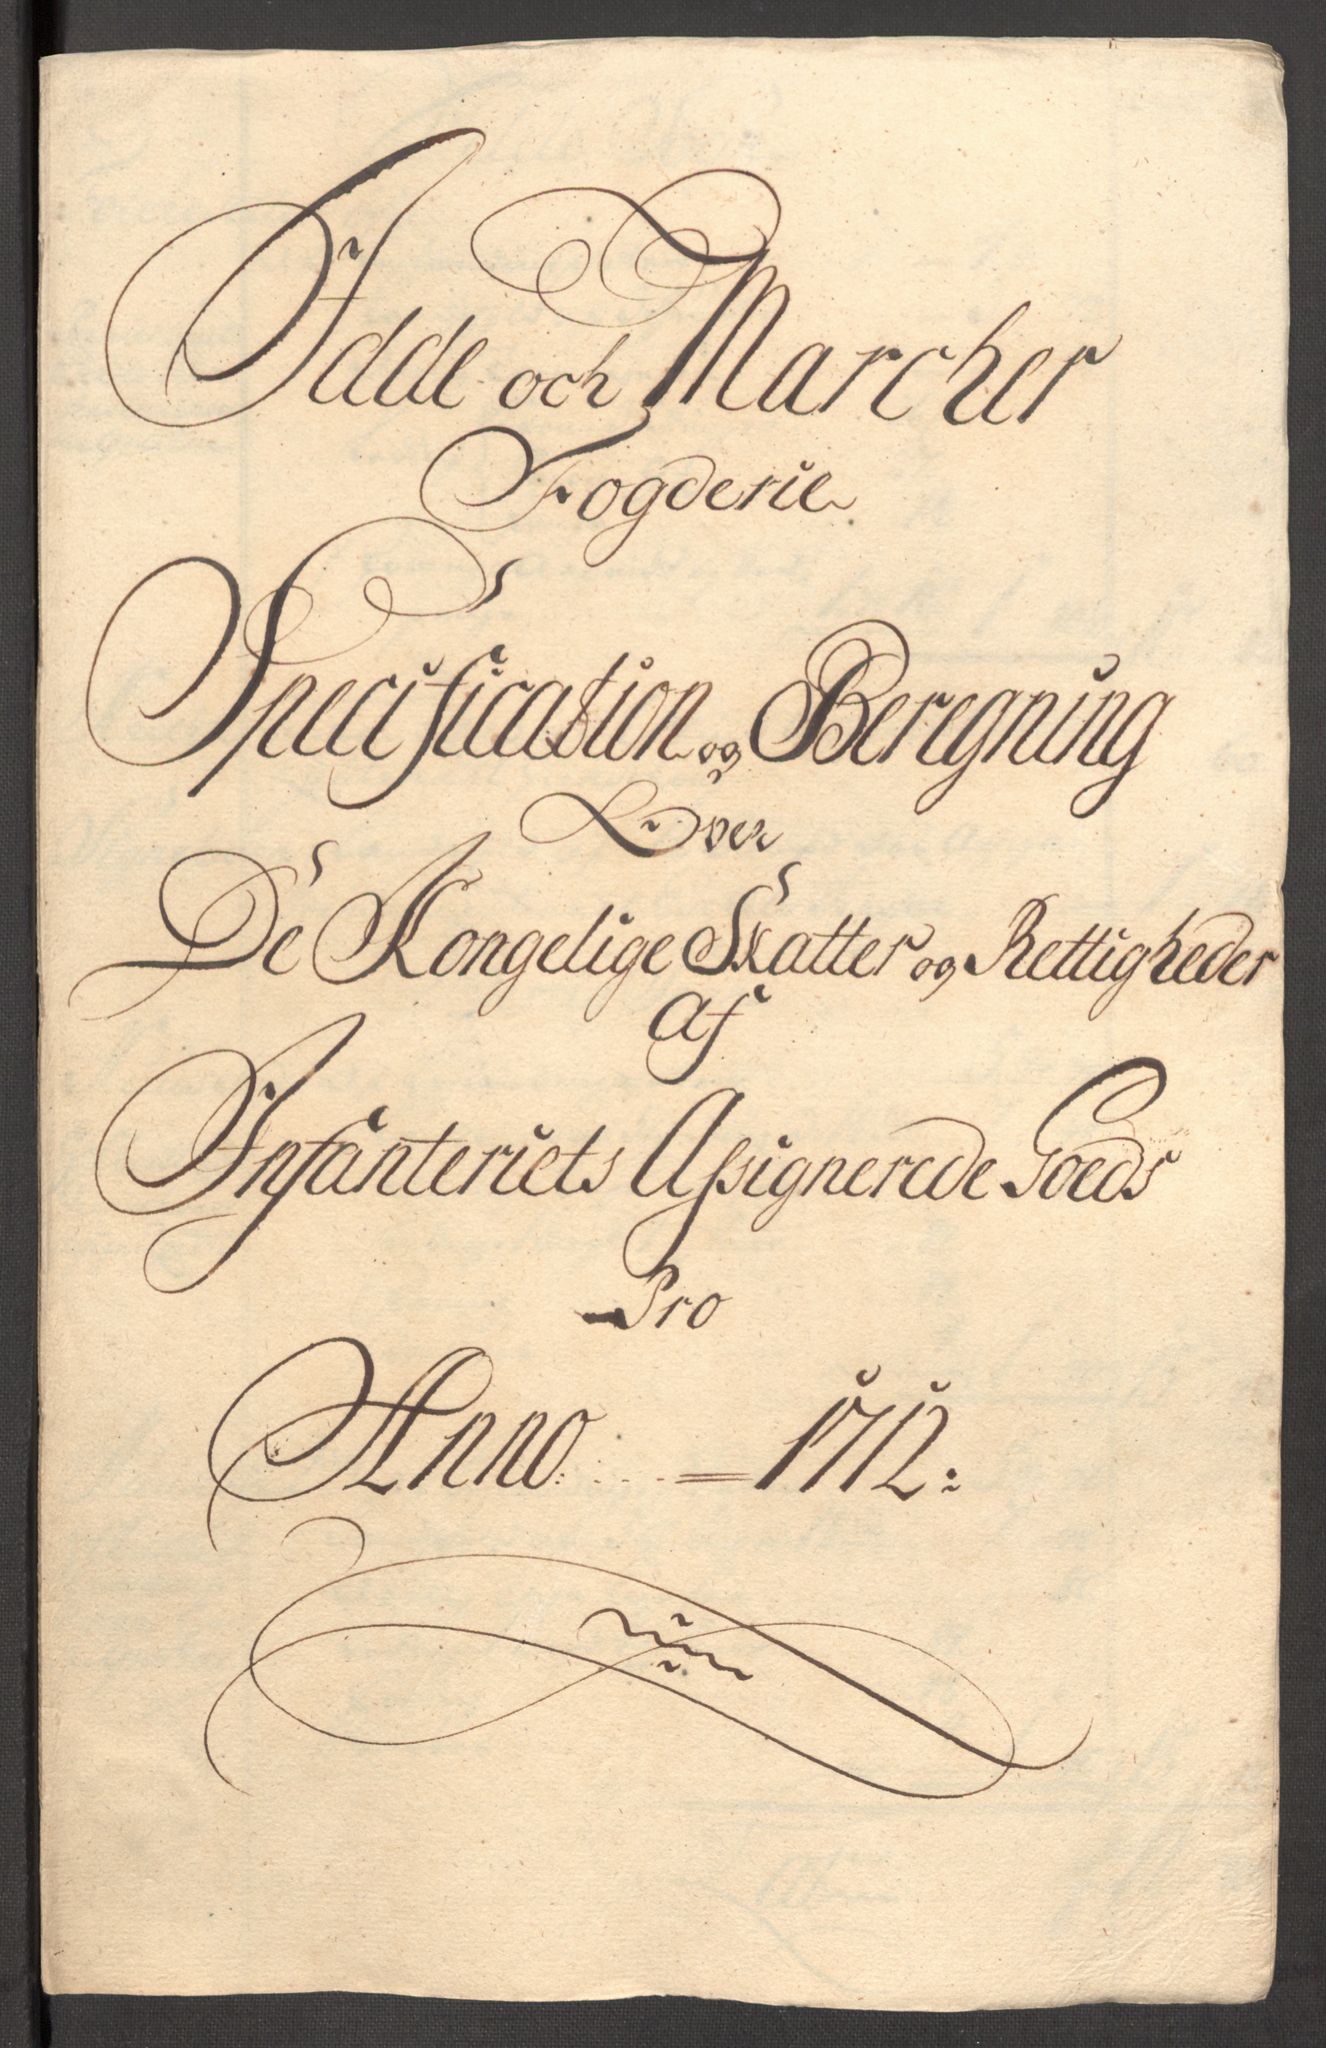 Idde och Marcher
Fogderie
Specification og Beregning
Over
De Kongelige Skatter og Rettigheder
af
Infanteriets Assignerede Goeds
Pro
Anno 1712: